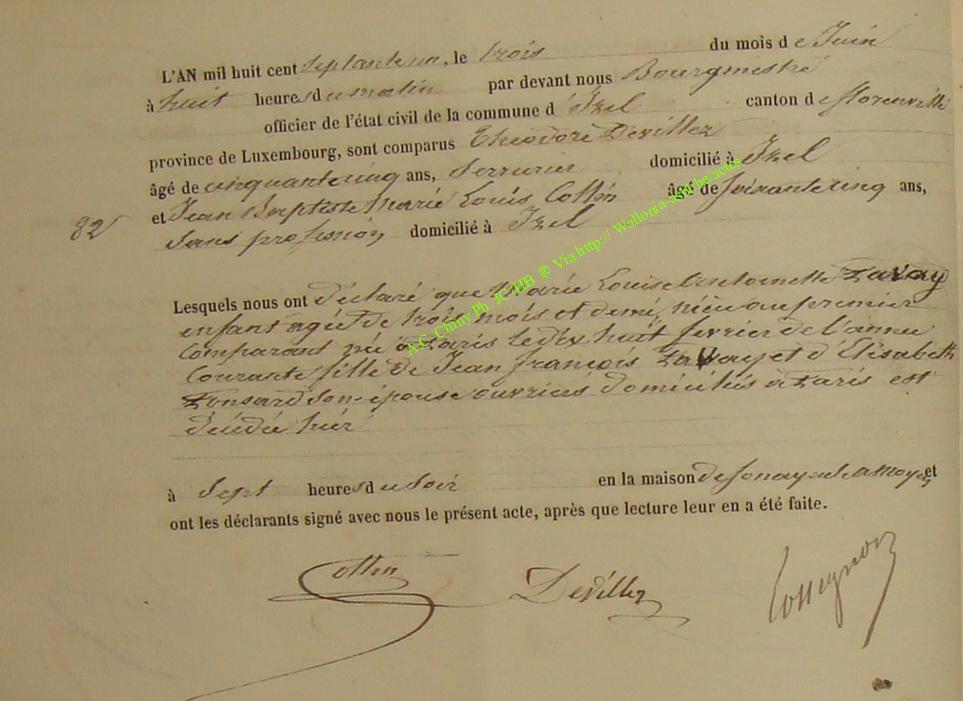 L'AN mil huit cent septante un, le trois du mois de Juin
à huit heures du matin par devant nous Bourgmestre
officier de l'état civil de la commune d'Izel canton de florenville
province de Luxembourg, sont comparus Théodore Devillez
âgé de cinquante cinq ans, Serrurier domicilié à Izel
et Jean Baptiste Marie Louis Collin âgé de soixante cinq ans,
82
Sans profession domicilié à Izel
Lesquels nous ont déclaré que Marie Louise Antoinette
enfant agée de trois mois et demi, nièce au premier
Comparant née à Paris le dix huit fevrier de l'année
Courante, fille de Jean françois et d'Elisabeth
Ponsard son épouse ouvriers domiciliés à Paris est
décédée hier
à Sept heures du Soir en la maison de et
ont les déclarants signé avec nous le présent acte, après que lecture leur en a été faite.
Collin Devillez
A.C. Chiny Ph JCHB ® Via http://